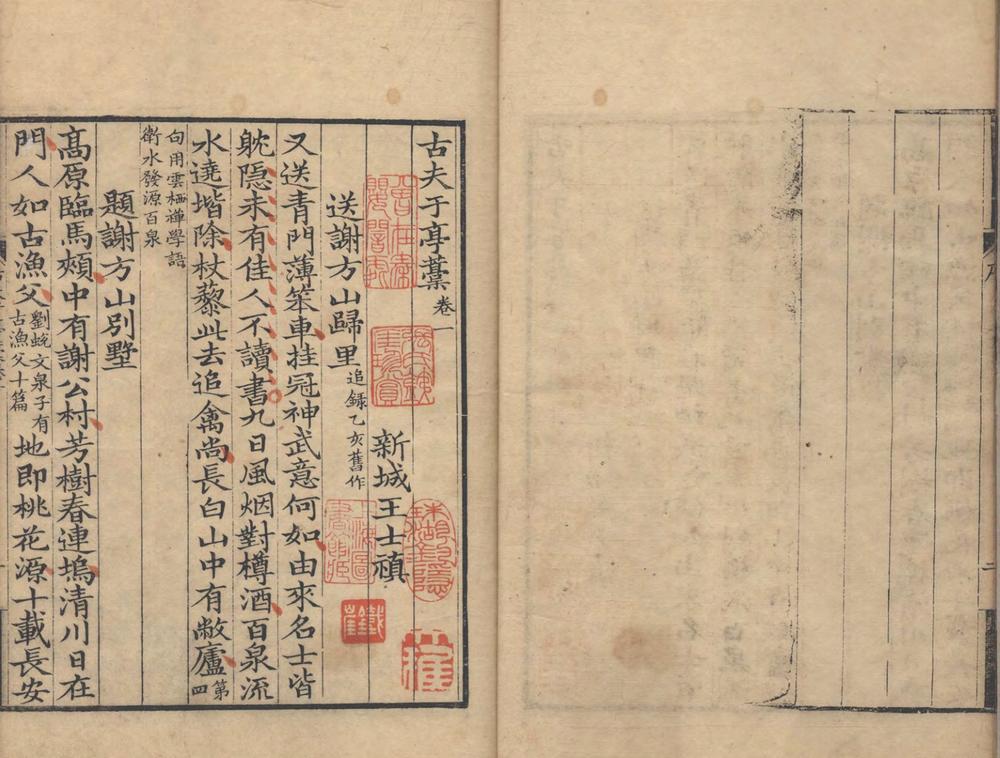 古夫于亭藁卷一
新城王士禛
送謝方山歸里追録乙亥舊作
又送青門薄笨車挂冠神武意何如由來名士皆
躭隠未有佳人不讀書九日風烟對樽酒百泉流
水遶堦除杖藜此去追禽尚長白山中有敝廬第四
句用雲栖禪學語
衛水發源百泉
題謝方山別墅
高原臨馬頰中有謝公村芳樹春連塢清川日在
門人如古漁父劉蛻文泉子有古漁父十篇地即桃花源十載長安
鐵崔